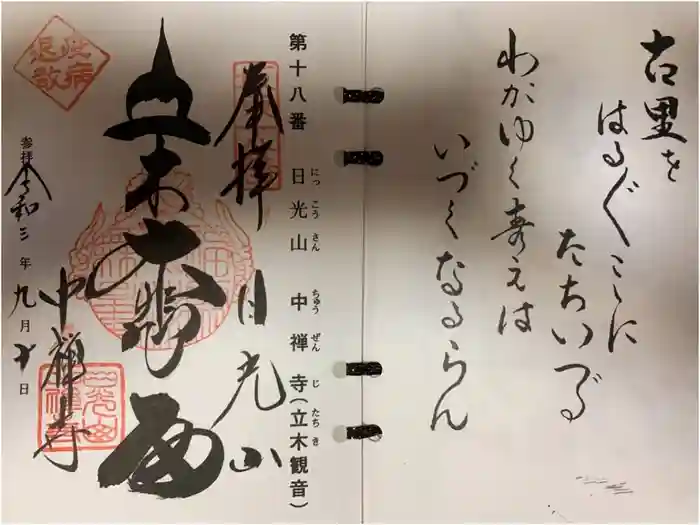 古里を
はる〴〵こゝに
たちいづる
わがゆく寿えは
いづくなるらん
第十八番 日光山 中禅寺(立木観音)
にっ こう さん ちゅう ぜん じ たち き
奉拝 日光山
立木大悲殿
中禅寺
参拝 令和三年九月十日
疫病退散